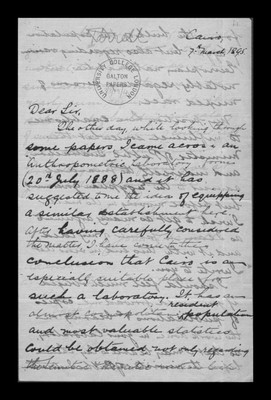 Cairo,
7th March, 1895
UNIVERSITY COLLEGE LONDON
GALTON
PAPERS
Dear Sir,
The other day, while looking through
some papers, I came across an
Anthropometric Laboratory
(20th July 1888) and it has
suggested to me the idea of equipping
a similar establishment here.
After having carefully considered
the matter, I have come to the
conclusion that Cairo is an
especially suitable place for
such a laboratory. It has an
almost resident population
and most valuable statistics
could be obtained not only regarding